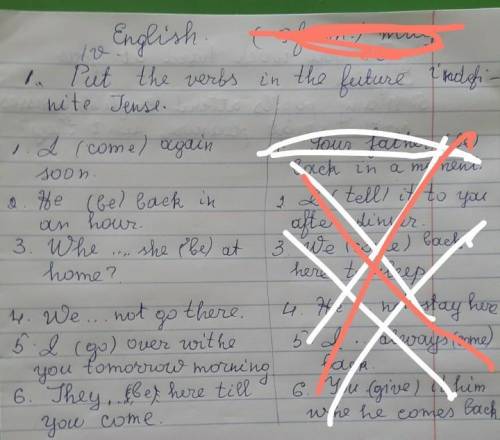 English.
1v.
1. Put the verbs in the future indefi-
nite Tense.
1. I (come) again
soon.
2. He (be) back in
an hour.
3. Whe .... she (be) at
home?
4. We ... not go there.
5. I (go) over withe
you tomorrow morning
6. They ... (be) here till
you come.
Your father
back in a moment.
2. I (tell) it to you
after dinner.
3. We back
here to
4. He stay here
5. I .. always (come)
back.
6. You (give) it him
whe he comes back